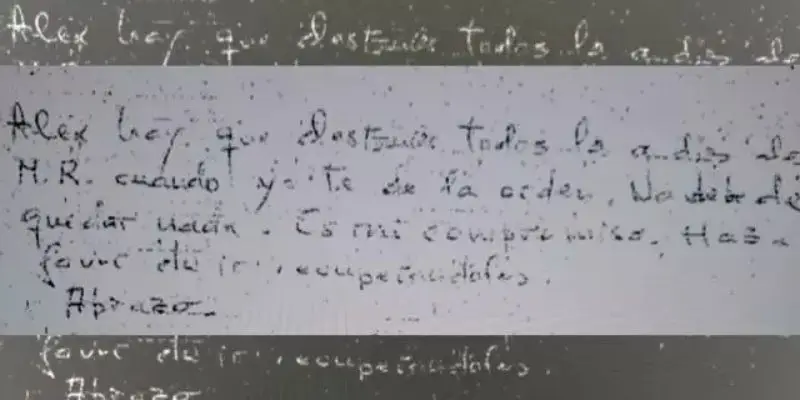 Alex hay que destruir todos los audios de
Alex hay que destruir todos los audios de
M.R. cuando yo te de la orden. No debe de
quedar nada. Es mi compromiso. Has
favor de ir recuperandolos.
Abrazo.
favor de ir recuperandolos.
Abrazo